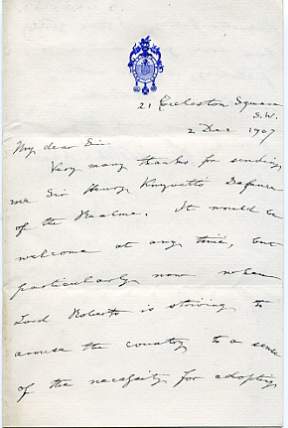 21 Eccleston Square
S.W.
2 Dec 1907
My dear Sir
Very many thanks for sending
me Sir Henry Knyvetts Defence
of the Realme. It would be
welcome at any time, but
particularly now when
Lord Roberts is striving to
arouse the country to a sense
of the necessity for adopting